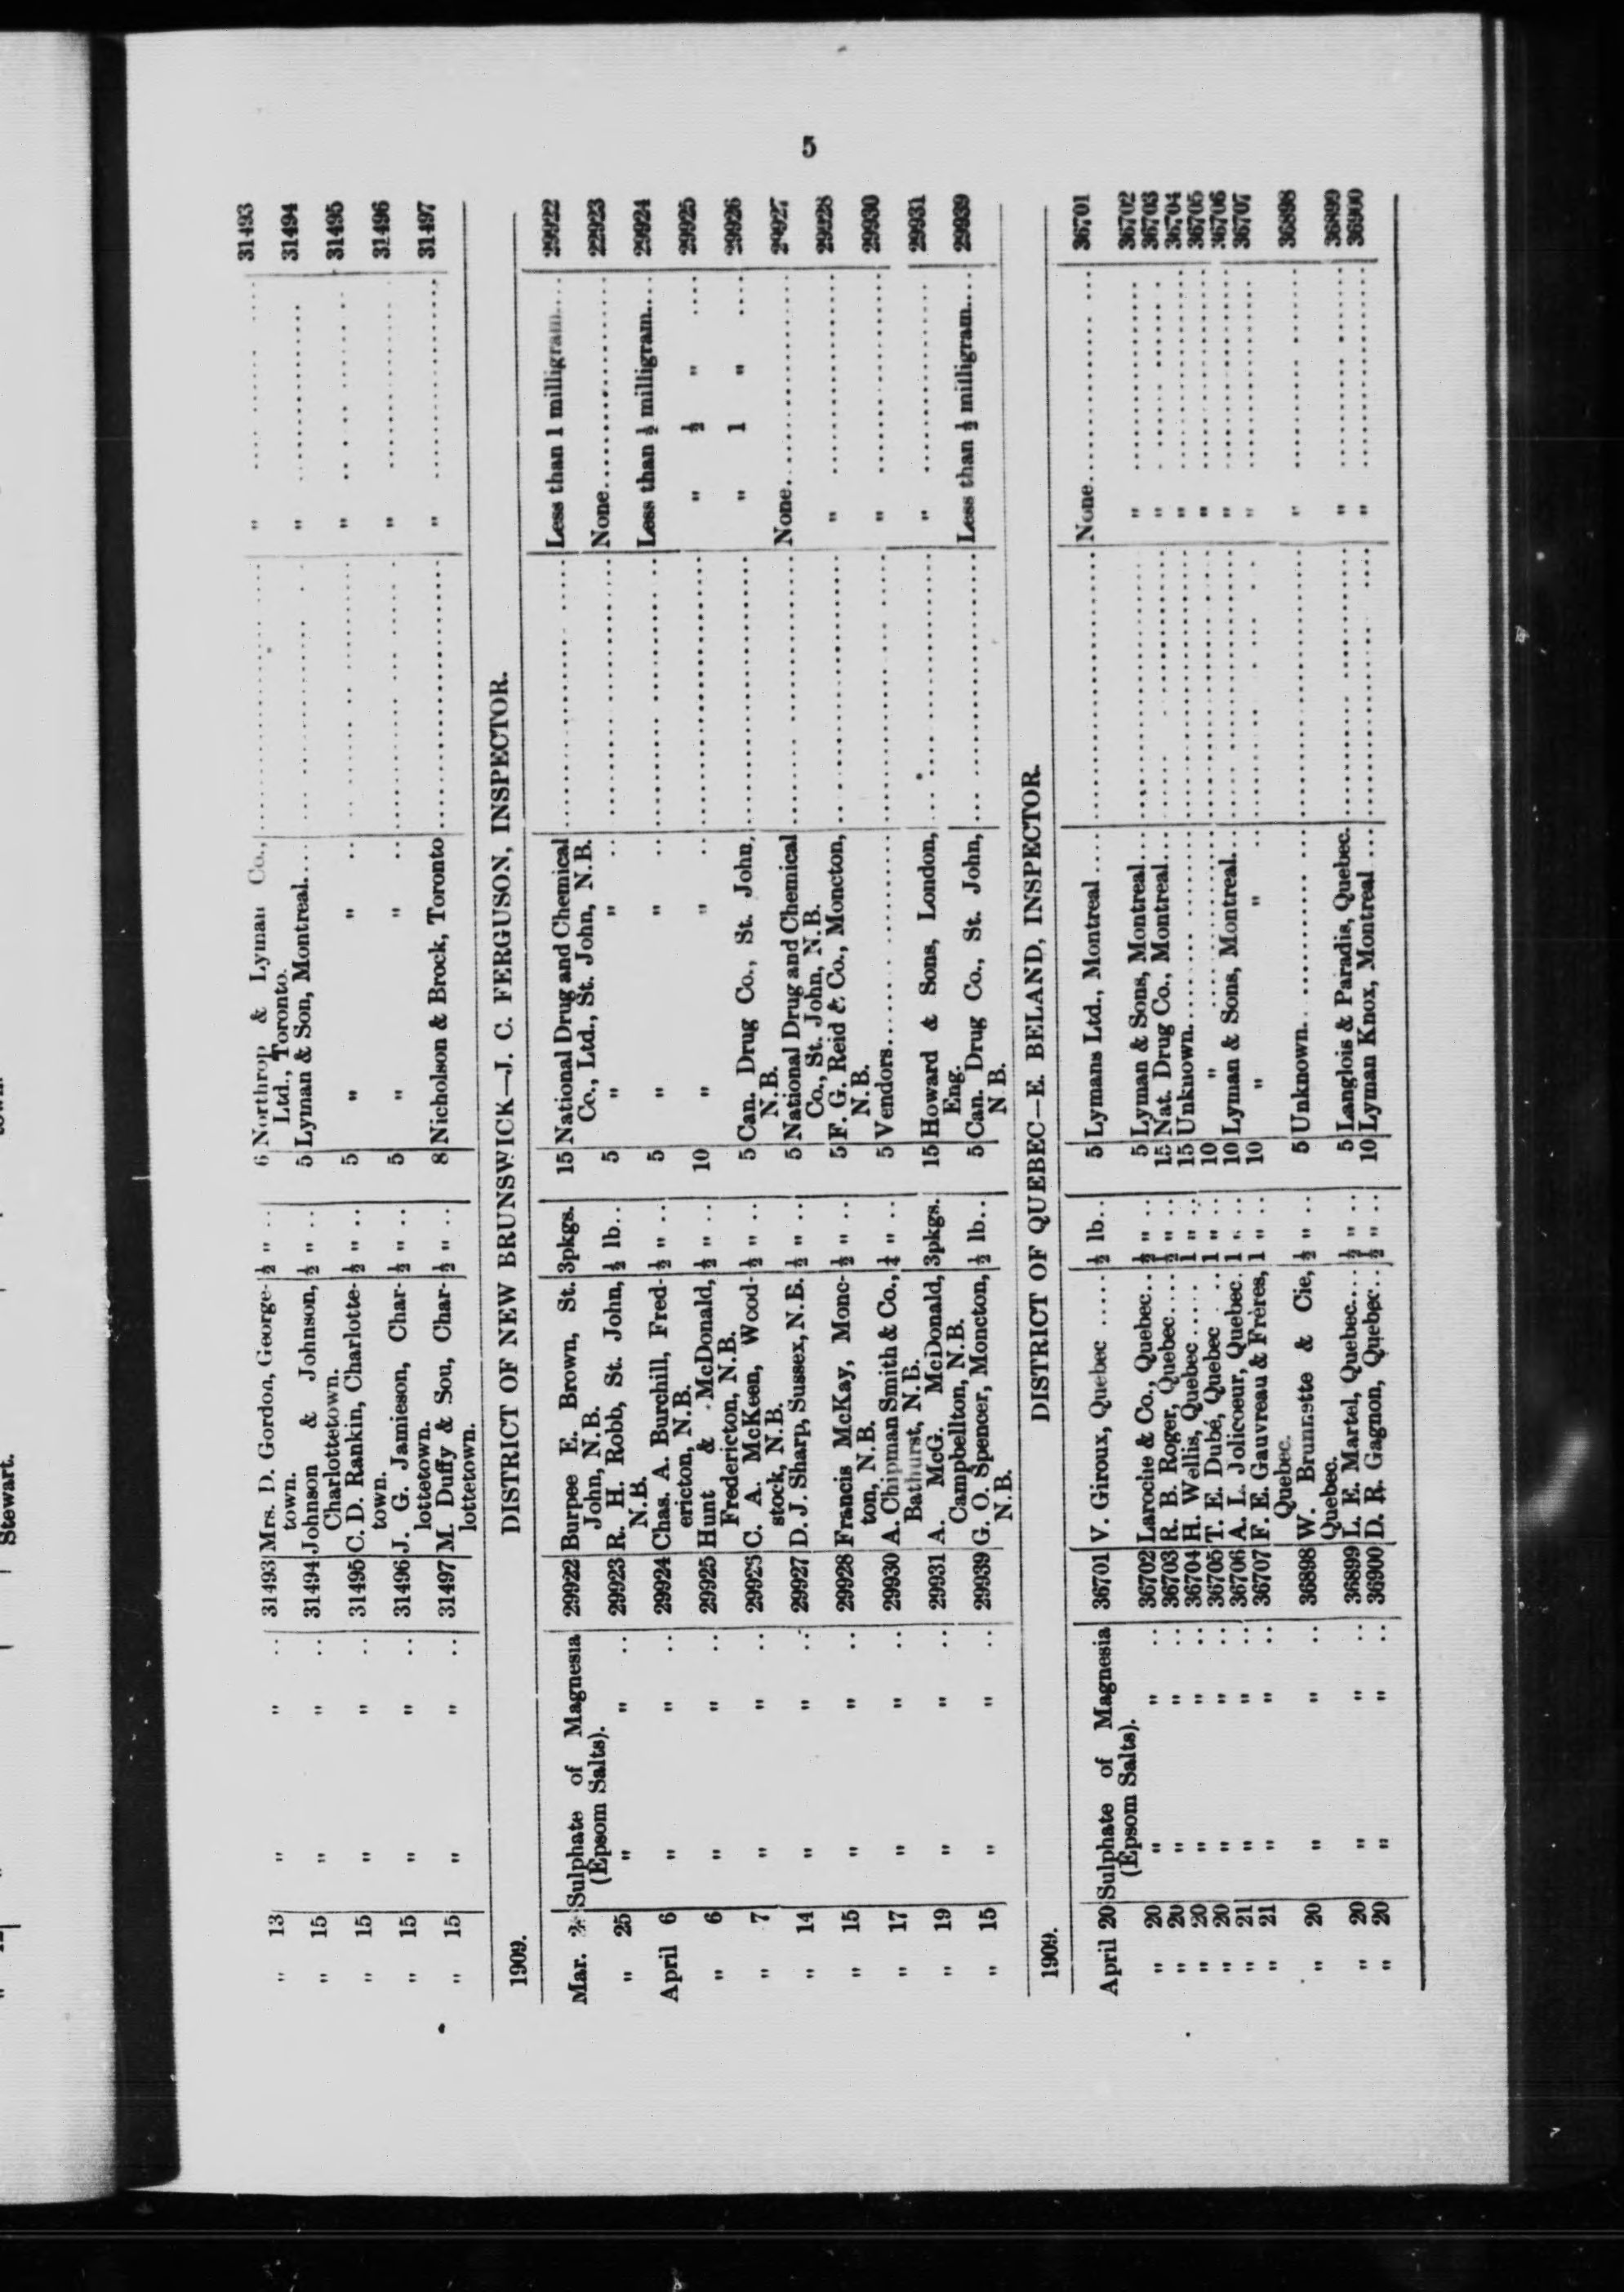 5
" 13 " " .. 31493 Mrs. D. Gordon, George- ½ " .. 6 Northrop & Lyman Co., " 31493
town. Ltd., Toronto.
" 15 " " .. 31494 Johnson & Johnson, ½ " .. 5 Lyman & Son, Montreal.... " 31494
Charlottetown.
" 15 " " .. 31495 C. D. Rankin, Charlotte- ½ " .. 5 " " .. " 31495
town.
" 15 " " .. 31496 J. G. Jamieson, Char- ½ " .. 5 " " .. " 31496
lottetown.
" 15 " " .. 31497 M. Duffy & Son, Char- ½ " .. 8 Nicholson & Brock, Toronto " 31497
lottetown.
DISTRICT OF NEW BRUNSWICK—J. C. FERGUSON, INSPECTOR.
1909.
Mar. Sulphate of Magnesia 29922 Burpee E. Brown, St. 3pkgs. 15 National Drug and Chemical Less than 1 milligram.... 29922
(Epsom Salts). John, N.B. Co., Ltd., St. John, N.B.
" 25 " " .. 29923 R. H. Robb, St. John, ½ lb.. 5 " " .. None 22923
N.B.
April 6 " " .. 29924 Chas. A. Burchill, Fred- ½ " .. 5 " " .. Less than ½ milligram.... 29924
ericton, N.B.
" 6 " " .. 29925 Hunt & McDonald, ½ " .. 10 " " .. " ½ " .... 29925
Fredericton, N.B.
" 7 " " .. 29925 C. A. McKeen, Wood- ½ " .. 5 Can. Drug Co., St. John, " 1 " .... 29926
stock, N.B. N.B.
" 14 " " .. 29927 D. J. Sharp, Sussex, N.B. ½ " .. 5 National Drug and Chemical None 29927
Co., St. John, N.B.
" 15 " " .. 29928 Francis McKay, Monc- ½ " .. 5 F. G. Reid & Co., Moncton, " 29928
ton, N.B. N.B.
" 17 " " .. 29930 A. Chipman Smith & Co., ¼ " .. 5 Vendors " 29930
Bathurst, N.B.
" 19 " " .. 29931 A. McG. McDonald, 3pkgs. 15 Howard & Sons, London, " 29931
Campbellton, N.B. Eng.
" 15 " " .. 29939 G. O. Spencer, Moncton, ½ lb.. 5 Can. Drug Co., St. John, Less than ½ milligram.... 29939
N.B. N B.
DISTRICT OF QUEBEC—E. BELAND, INSPECTOR.
1909.
April 20 Sulphate of Magnesia 36701 V. Giroux, Quebec ..... ½ lb.. 5 Lymans Ltd., Montreal .... None 36701
(Epsom Salts).
" 20 " " .. 36702 Laroche & Co., Quebec.. ½ " .. 5 Lyman & Sons, Montreal... " 36702
" 20 " " .. 36703 R. B. Roger, Quebec.... ½ " .. 15 Nat. Drug Co., Montreal... " 36703
" 20 " " .. 36704 H. Wellis, Quebec ..... 1 " .. 15 Unknown " 36704
" 20 " " .. 36705 T. E. Dubé, Quebec .. 1 " .. 10 " " 36705
" 21 " " .. 36706 A. L. Jolicoeur, Quebec. 1 " .. 10 Lyman & Sons, Montreal... " 36706
" 21 " " .. 36707 F. E. Gauvreau & Frères, 1 " .. 10 " " .. " 36707
Quebec.
" 20 " " .. 36898 W. Brunette & Cie, ½ " .. 5 Unknown " 36898
Quebec.
" 20 " " .. 36899 L. E. Martel, Quebec... ½ " .. 5 Langlois & Paradis, Quebec. " 36899
" 20 " " .. 36900 D. R. Gagnon, Quebec.. ½ " .. 10 Lyman Knox, Montreal ... " 36900
Stewart.